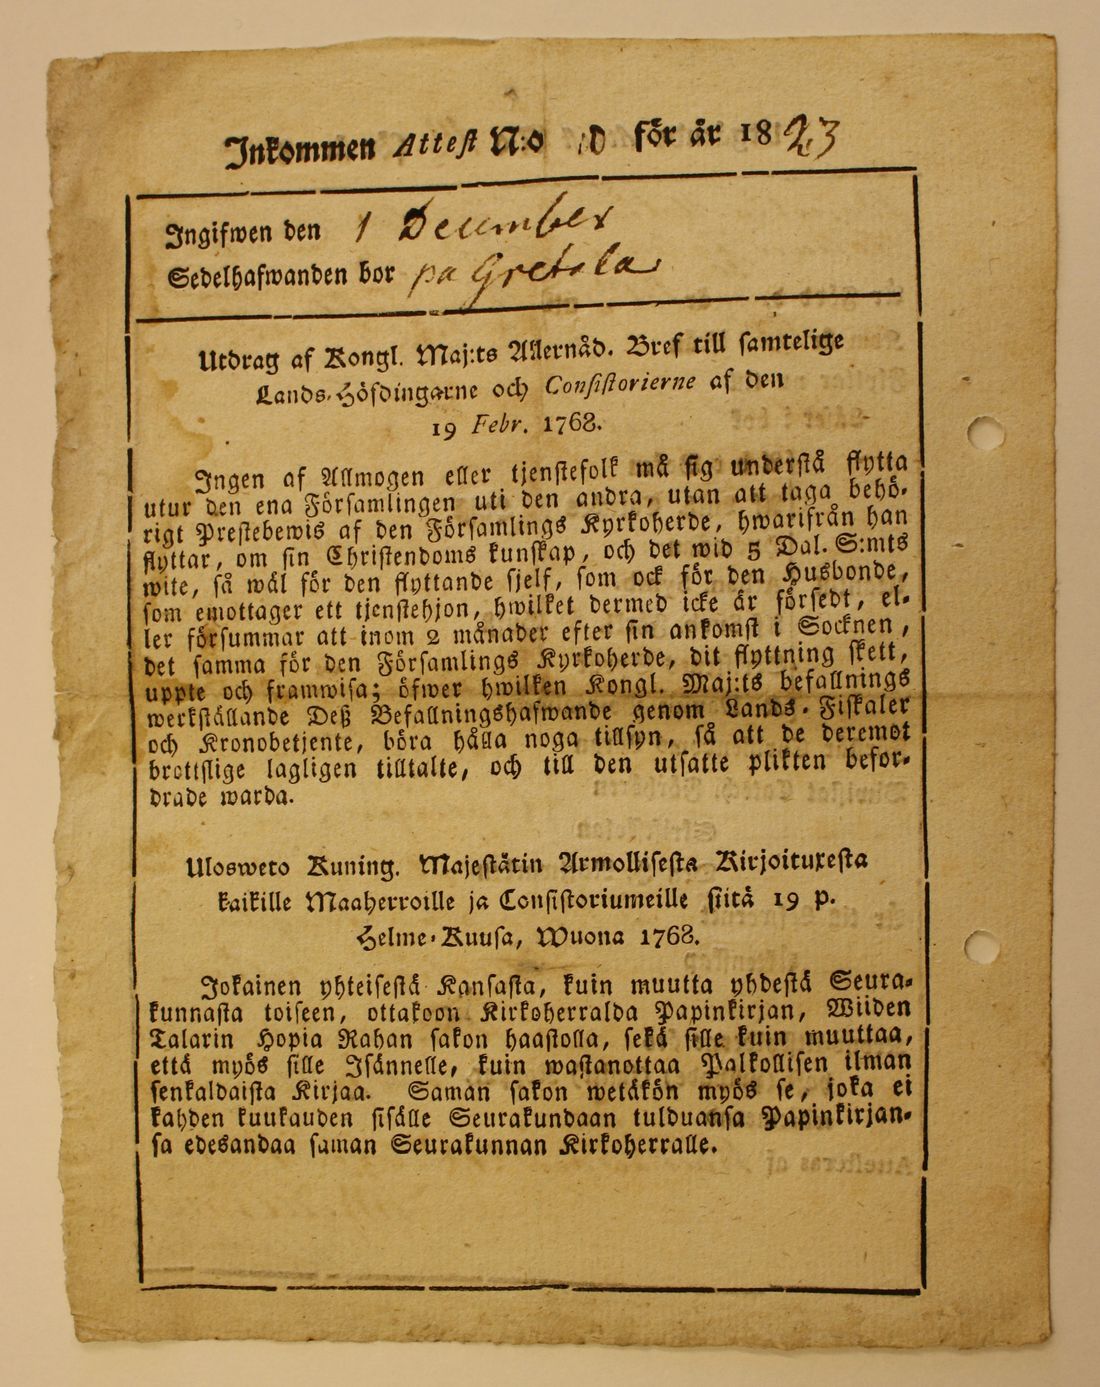 Inkommen Attest N:o 10 för år 1823
Ingifwen den 1 December
Sedelhafwanden bor på Gretala
Utdrag af Kongl. Maj:ts Allernåd. Bref till samtelige
Lands-Höfdingarne och Consistorierne af den
19 Febr. 1768.
Ingen af Allmogen eller tjenstefolk må sig understå flytta
utur den ena Församlingen uti den andra, utan att taga behö-
rigt Prestebewis af den Församlings Kyrkoherde, hwarifrån han
flyttar, om sin Christendoms kunskap, och det wid 5 Dal. S:mts
wite, så wäl för den flyttande sjelf, som ock för den Husbonde,
som emottager ett tjenstehjon, hwilket dermed icke är försedt, el-
ler försummar att inom 2 månader efter sin ankomst i Socknen,
det samma för den Församlings Kyrkoherde, dit flyttning skett,
uppte och framwisa; öfwer hwilken Kongl. Maj:ts befallnings
werkställande Deß Befallningshafwande genom Lands-Fiskaler
och Kronobetjente, böra hålla noga tillsyn, så att de deremot
brottslige lagligen tilltalte, och till den utsatte plikten befor-
drade warda.
Ulosweto Kuning. Majestätin Armollisesta Kirjoituxesta
kaikille Maaherroille ja Consistoriumeille siitä 19 p.
Helme-Kuusa, Wuona 1768.
Jokainen yhteisestä Kansasta, kuin muutta yhdestä Seura-
kunnasta toiseen, ottakoon Kirkoherralda Papinkirjan, Wiiden
Talarin Hopia Rahan sakon haastolla, sekä sille kuin muuttaa,
että myös sille Isännelle, kuin wastanottaa Palkollisen ilman
senkaldaista Kirjaa. Saman sakon wetäkön myös se, joka ei
kahden kuukauden sisälle Seurakundaan tulduansa Papinkirjan-
sa edesandaa saman Seurakunnan Kirkoherralle.